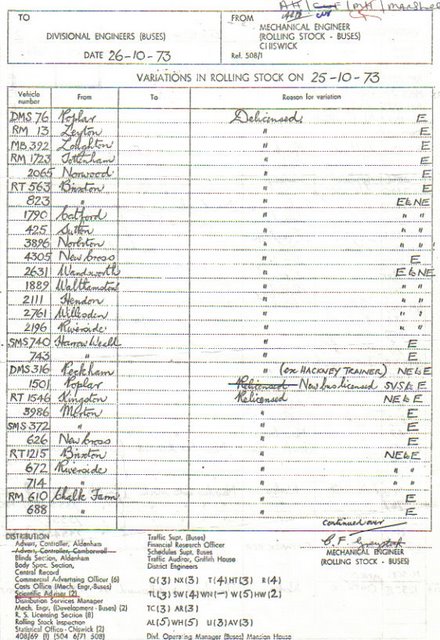 TO
DIVISIONAL ENGINEERS (BUSES)
DATE 26-10-73
FROM
MECHANICAL ENGINEER
(ROLLING STOCK - BUSES)
CHISWICK
Ref. 508/1
VARIATIONS IN ROLLING STOCK ON 25-10-73
Vehicle number From To Reason for variation
DMS 76 Poplar Delicensed E
RM 13 Leyton " E
MB 392 Loughton " E
RM 1723 Tottenham " E
2065 Norwood " E
RT 563 Brixton " E
823 " " E&NE
1790 Catford " " "
425 Sutton " " "
3896 Norbiton " " "
4305 New Cross " E
2631 Wandsworth " E&NE
1889 Walthamstow " " "
2111 Hendon " " "
2761 Willesden " " "
2196 Riverside " " "
SMS 740 Harrow Weald " E
743 " " E
DMS 316 Peckham " (ex HACKNEY TRAINER) NE&E
1501 Poplar Relicensed New bus licensed SVS&E
RT 1546 Kingston Relicensed NE&E
3986 Merton " E
SMS 372 " " E
626 New Cross " E
RT 1215 Brixton " NE&E
672 Riverside " " "
714 " " " "
RM 610 Chalk Farm " E
688 " " E
continued over
DISTRIBUTION
Advert. Controller, Aldenham
Advert. Controller, Camberwell
Blinds Section, Aldenham
Body Spec. Section,
Central Record
Commercial Advertising Officer (6)
Costs Office (Mech. Engr.-Buses)
Scientific Adviser (2)
Distribution Services Manager
Mech. Engr. (Development - Buses) (2)
R. S. Licensing Section (8)
Rolling Stock Inspection
Statistical Office - Chiswick (2)
408/69 (I) (504 6/71 508)
Traffic Supt. (Buses)
Financial Research Officer
Schedules Supt. Buses
Traffic Audit, Griffith House
District Engineers
Q(3) NX(3) T(4) HT(3) R(4)
TL(3) SW(4) WN(-) W(5) HW(2)
TC(3) AR(3)
AL(5) WH(5) U(3) AV(3)
Div. Operating Manager (Buses) Mansion House
MECHANICAL ENGINEER
(ROLLING STOCK - BUSES)